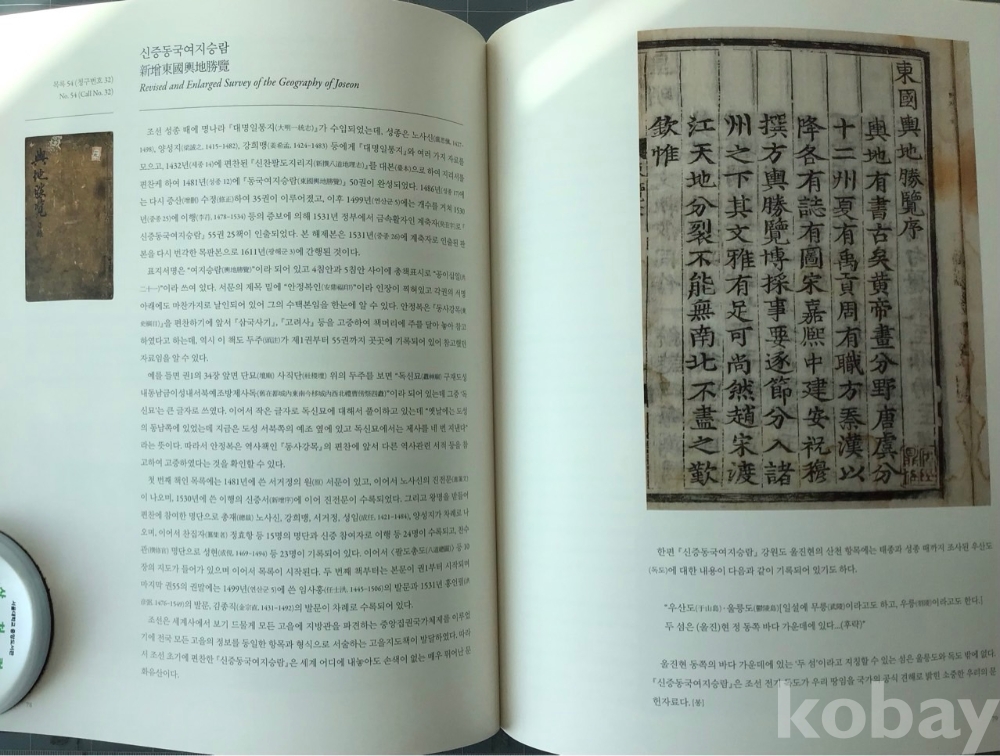 신증동국여지승람
新增東國輿地勝覽
Revised and Enlarged Survey of the Geography of Joseon
목록 54 (청구번호 32)
No. 54 (Call No. 32)
輿地勝覽
조선 성종 때에 명나라 『대명일통지(大明一統志)』가 수입되었는데, 성종은 노사신(盧思愼, 1427-
1498), 양성지(梁誠之, 1415-1482), 강희맹(姜希孟, 1424-1483) 등에게 『대명일통지』와 여러 가지 자료를
모으고, 1432년(세종 14)에 편찬된 『신찬팔도지리지(新撰八道地理志)』를 대본(臺本)으로 하여 지리서를
편찬케 하여 1481년(성종 12)에 『동국여지승람(東國輿地勝覽)』 50권이 완성되었다. 1486년(성종 17)에
는 다시 증산(增刪) 수정(修正)하여 35권이 이루어졌고, 이후 1499년(연산군 5)에는 개수를 거쳐 1530
년(중종 25)에 이행(李荇, 1478-1534) 등의 증보에 의해 1531년 정부에서 금속활자인 계축자로
신증동국여지승람』 55권 25책이 인출되었다. 본 해제본은 1531년(중종 26)에 계축자로 인출된 판
본을 다시 번각한 목판본으로 1611년(광해군 3)에 간행된 것이다.
표지서명은 "여지승람(輿地勝覽)"이라 되어 있고 4침안과 5침안 사이에 총책표시로 "공이십일(共
二十一)"이라 쓰여 있다. 서문의 제목 밑에 "안정복인(安鼎福印)"이라 인장이 찍혀있고 각권의 서명
아래에도 마찬가지로 날인되어 있어 그의 수택본임을 한눈에 알 수 있다. 안정복은 『동사강목(東
史綱目)』을 편찬하기에 앞서 『삼국사기』, 『고려사』 등을 고증하여 책머리에 주를 달아 놓아 참고
하였다고 하는데, 역시 이 책도 두주(頭註)가 제1권부터 55권까지 곳곳에 기록되어 있어 참고했던
자료임을 알 수 있다.
예를 들면 권1의 34장 앞면 단묘(壇廟) 사직단(社稷壇) 위의 두주를 보면 "독신묘(纛神廟) 구재도성
내동남금이성내서북예조앞제사독 이라 되어 있는데 그중 '독
신묘'는 큰 글자로 쓰였다. 이어서 작은 글자로 독신묘에 대해서 풀이하고 있는데 "옛날에는 도성
의 동남쪽에 있었는데 지금은 도성 서북쪽의 예조 옆에 있고 독신묘에서는 제사를 네 번 지낸다"
라는 뜻이다. 따라서 안정복은 역사책인 『동사강목』의 편찬에 앞서 다른 역사관련 서적 등을 참
고하여 고증하였다는 것을 확인할 수 있다.
첫 번째 책인 목록에는 1481년에 쓴 서거정의 원(原) 서문이 있고, 이어서 노사신의 진전문(進箋文)
이 나오며, 1530년에 쓴 이행의 신증서(新增序)에 이어 진전문이 수록되었다. 그리고 왕명을 받들어
편찬에 참여한 명단으로 총재(總裁) 노사신, 강희맹, 서거정, 성임(成任, 1421-1484), 양성지가 차례로 나
오며, 이어서 찬집자(纂集者) 정효항 등 15명의 명단과 신증 참여자로 이행 등 24명이 수록되고, 찬수
관(撰修官) 명단으로 성현(成俔, 1469-1494) 등 23명이 기록되어 있다. 이어서 〈팔도총도(八道總圖)〉 등 10
장의 지도가 들어가 있으며 이어서 목록이 시작된다. 두 번째 책부터는 본문이 권1부터 시작되며
마지막 권55의 권말에는 1499년(연산군 5)에 쓴 임사홍(任士洪, 1445-1506)의 발문과 1531년 홍언필(洪
彦弼, 1476-1549)의 발문, 김종직(金宗直, 1431-1492)의 발문이 차례로 수록되어 있다.
조선은 세계사에서 보기 드물게 모든 고을에 지방관을 파견하는 중앙집권국가체제를 이루었
기에 전국 모든 고을의 정보를 동일한 항목과 형식으로 서술하는 고을지도책이 발달하였다. 따라
서 조선 초기에 편찬한 『신증동국여지승람』은 세계 어디에 내놓아도 손색이 없는 매우 뛰어난 문
화유산이다.
東國輿地勝覽序
輿地有書古矣黃帝畫分野唐虞分
十二州夏有禹貢周有職方秦漢以
降各有誌有圖宋嘉熙中建安祝穆
撰方輿勝覽博採事要逐節分入諸
州之下其文雅有足可尚然趙宋渡
江天地分裂不能無南北不盡之歎
欽惟
한편 『신증동국여지승람』 강원도 울진현의 산천 항목에는 태종과 성종 때까지 조사된 우산도
(독도)에 대한 내용이 다음과 같이 기록되어 있기도 하다.
"우산도(于山島)·울릉도(鬱陵島)[일설에 무릉(武陵)이라고도 하고, 우릉(羽陵)이라고도 한다.]
두 섬은 (울진)현 정 동쪽 바다 가운데에 있다...(후략)"
울진현 동쪽의 바다 가운데에 있는 '두 섬'이라고 지칭할 수 있는 섬은 울릉도와 독도 밖에 없다.
『신증동국여지승람』은 조선 전기 독도가 우리 땅임을 국가의 공식 견해로 밝힌 소중한 우리의 문
헌자료다. [봉]
kobay